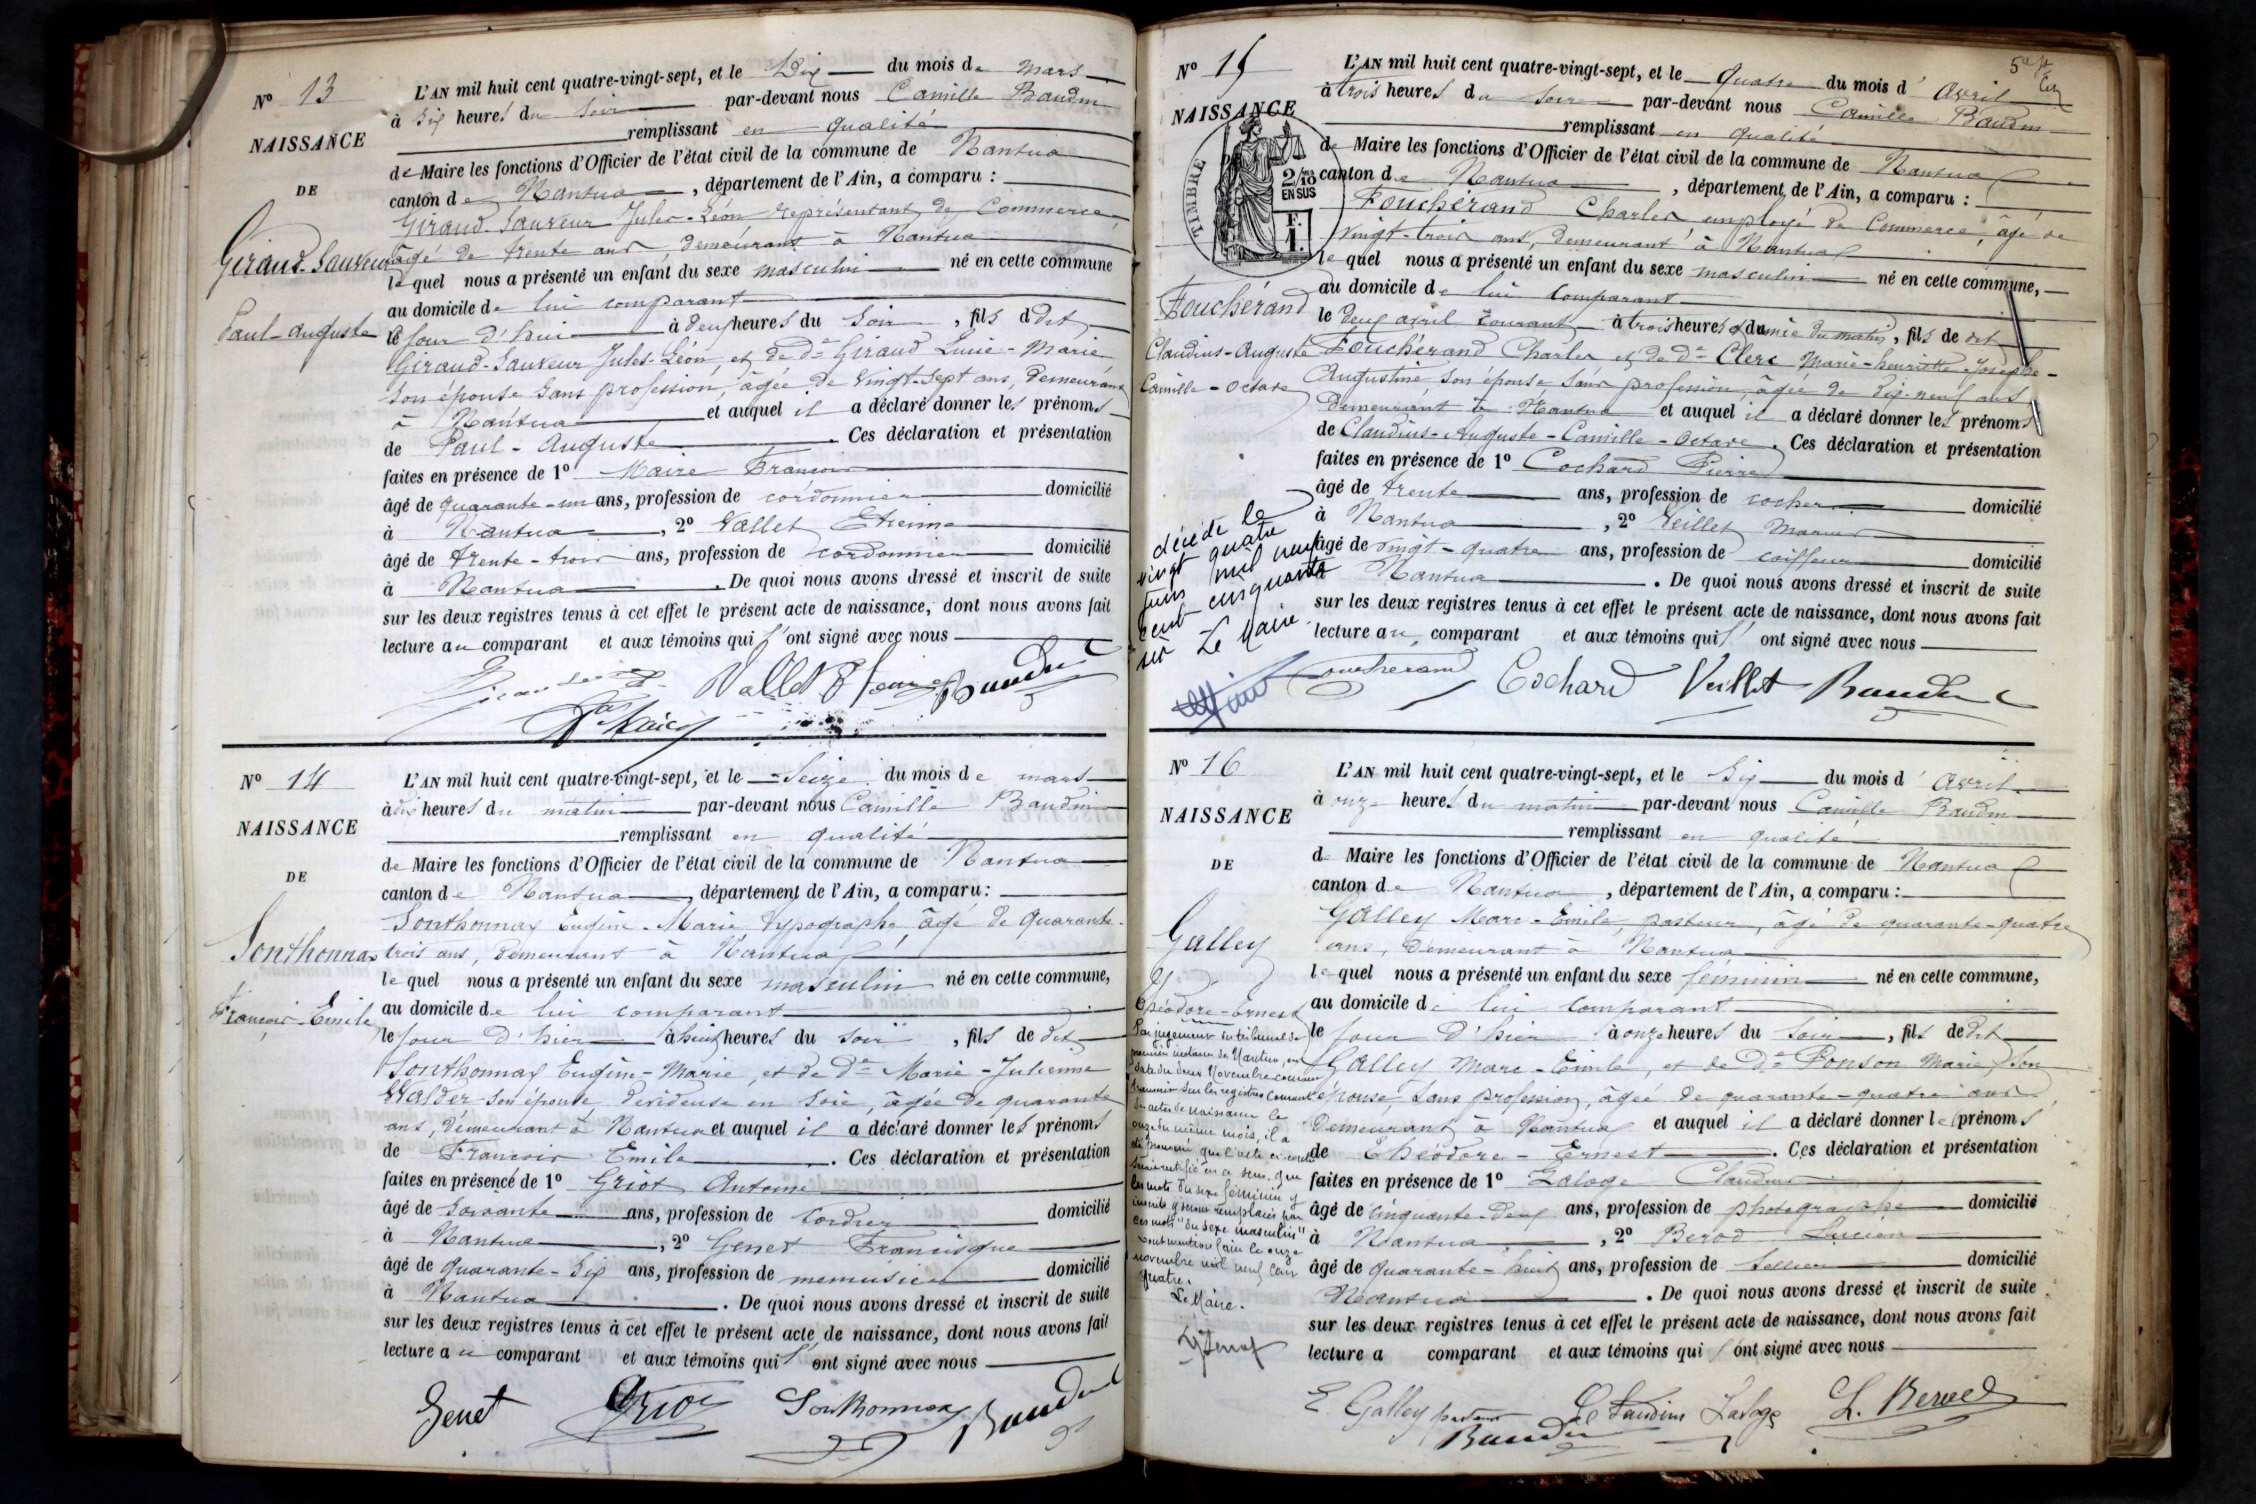 N° 13
NAISSANCE
DE
Giraud-Sauveur
Paul-Auguste
L'AN mil huit cent quatre-vingt-sept, et le Dix du mois de mars
à six heures du soir par-devant nous Camille Baudin
remplissant en qualité
de Maire les fonctions d'Officier de l'état civil de la commune de Nantua
canton de Nantua, département de l'Ain, a comparu :
Giraud-Sauveur Jules-Léon représentant de Commerce
âgé de trente ans, demeurant à Nantua
lequel nous a présenté un enfant du sexe masculin né en cette commune
au domicile de lui comparant
le jour d'hui à deux heures du soir, fils d dit
Giraud-Sauveur Jules-Léon, et de De Giraud Lucie-Marie
son épouse sans profession, âgée de vingt-sept ans, demeurant
à Nantua et auquel il a déclaré donner les prénoms
de Paul-Auguste. Ces déclaration et présentation
faites en présence de 1° Maire François
âgé de quarante-un ans, profession de cordonnier domicilié
à Nantua, 2° Vallet Etienne
âgé de trente-trois ans, profession de cordonnier domicilié
à Nantua. De quoi nous avons dressé et inscrit de suite
sur les deux registres tenus à cet effet le présent acte de naissance, dont nous avons fait
lecture au comparant et aux témoins qui l'ont signé avec nous
Vallet Baudin
N° 14
NAISSANCE
DE
Sonthonnax
François-Emile
L'AN mil huit cent quatre-vingt-sept, et le Seize du mois de mars
à dix heures du matin par-devant nous Camille Baudin
remplissant en qualité
de Maire les fonctions d'Officier de l'état civil de la commune de Nantua
canton de Nantua, département de l'Ain, a comparu :
Sonthonnax Eugène-Marie, typographe, âgé de quarante-
trois ans, demeurant à Nantua
lequel nous a présenté un enfant du sexe masculin né en cette commune,
au domicile de lui comparant
le jour d'hier à huit heures du soir, fils de dit
Sonthonnax Eugène-Marie, et de De Marie-Julienne
Walder son épouse, dévideuse en soie, âgée de quarante
ans, demeurant à Nantua et auquel il a déclaré donner les prénoms
de François Emile. Ces déclaration et présentation
faites en présence de 1° Griot Antoine
âgé de soixante ans, profession de cordier domicilié
à Nantua, 2° Genet Francisque
âgé de quarante-six ans, profession de menuisier domicilié
à Nantua. De quoi nous avons dressé et inscrit de suite
sur les deux registres tenus à cet effet le présent acte de naissance, dont nous avons fait
lecture au comparant et aux témoins qui l'ont signé avec nous
Genet Griot Sonthonnax Baudin
N° 15
NAISSANCE
TIMBRE
2/10 EN SUS
F. 1.
Fouchérand
Claudius-Auguste
Camille-Octave
L'AN mil huit cent quatre-vingt-sept, et le quatre du mois d'Avril
à trois heures du soir par-devant nous Camille Baudin
remplissant en qualité
de Maire les fonctions d'Officier de l'état civil de la commune de Nantua
canton de Nantua, département de l'Ain, a comparu :
Fouchérand Charles employé de Commerce, âgé de
vingt-trois ans, demeurant à Nantua
lequel nous a présenté un enfant du sexe masculin né en cette commune,
au domicile de lui comparant
le deux avril courant à trois heures & demie du matin, fils de dit
Fouchérand Charles et de De Clerc Marie-henriette-Josephe-
Augustine son épouse sans profession, âgée de dix-neuf ans
demeurant à Nantua et auquel il a déclaré donner les prénoms
de Claudius-Auguste-Camille-Octave. Ces déclaration et présentation
faites en présence de 1° Cochard Pierre
âgé de trente ans, profession de cocher domicilié
à Nantua, 2° Veillet Marius
âgé de vingt-quatre ans, profession de coiffeur domicilié
à Nantua. De quoi nous avons dressé et inscrit de suite
sur les deux registres tenus à cet effet le présent acte de naissance, dont nous avons fait
lecture au comparant et aux témoins qui l'ont signé avec nous
décédé le
vingt quatre
juin mil neuf
cent cinquante
six Le Maire
Fouchérand Cochard Veillet Baudin
N° 16
NAISSANCE
DE
Galley
Théodore-Ernest
L'AN mil huit cent quatre-vingt-sept, et le Six du mois d'Avril
à onze heures du matin par-devant nous Camille Baudin
remplissant en qualité
de Maire les fonctions d'Officier de l'état civil de la commune de Nantua
canton de Nantua, département de l'Ain, a comparu :
Galley Marc-Emile, pasteur, âgé de quarante-quatre
ans, demeurant à Nantua
lequel nous a présenté un enfant du sexe féminin né en cette commune,
au domicile de lui comparant
le jour d'hier à onze heures du soir, fils de dit
Galley Marc-Emile, et de De Ponson Marie son
épouse, sans profession, âgée de quarante-quatre ans
demeurant à Nantua et auquel il a déclaré donner les prénoms
de Théodore-Ernest. Ces déclaration et présentation
faites en présence de 1° Laloge Claudius
âgé de cinquante-deux ans, profession de photographe domicilié
à Nantua, 2° Berod Lucien
âgé de quarante-huit ans, profession de sellier domicilié
Nantua. De quoi nous avons dressé et inscrit de suite
sur les deux registres tenus à cet effet le présent acte de naissance, dont nous avons fait
lecture a comparant et aux témoins qui l'ont signé avec nous
Par jugement du tribunal de
première instance de Nantua, en
date du deux Novembre courant
transcrit sur les registres courants
des actes de naissance le
onze du même mois, il a
été ordonné que l'acte ci-contre
serait rectifié en ce sens que
les mots "du sexe féminin" y
inscrits seront remplacés par
ces mots "du sexe masculin"
Dont mention faite le onze
novembre mil neuf cent
quatre.
Le Maire.
E. Galley pasteur Claudius Laloge L. Berod
Baudin